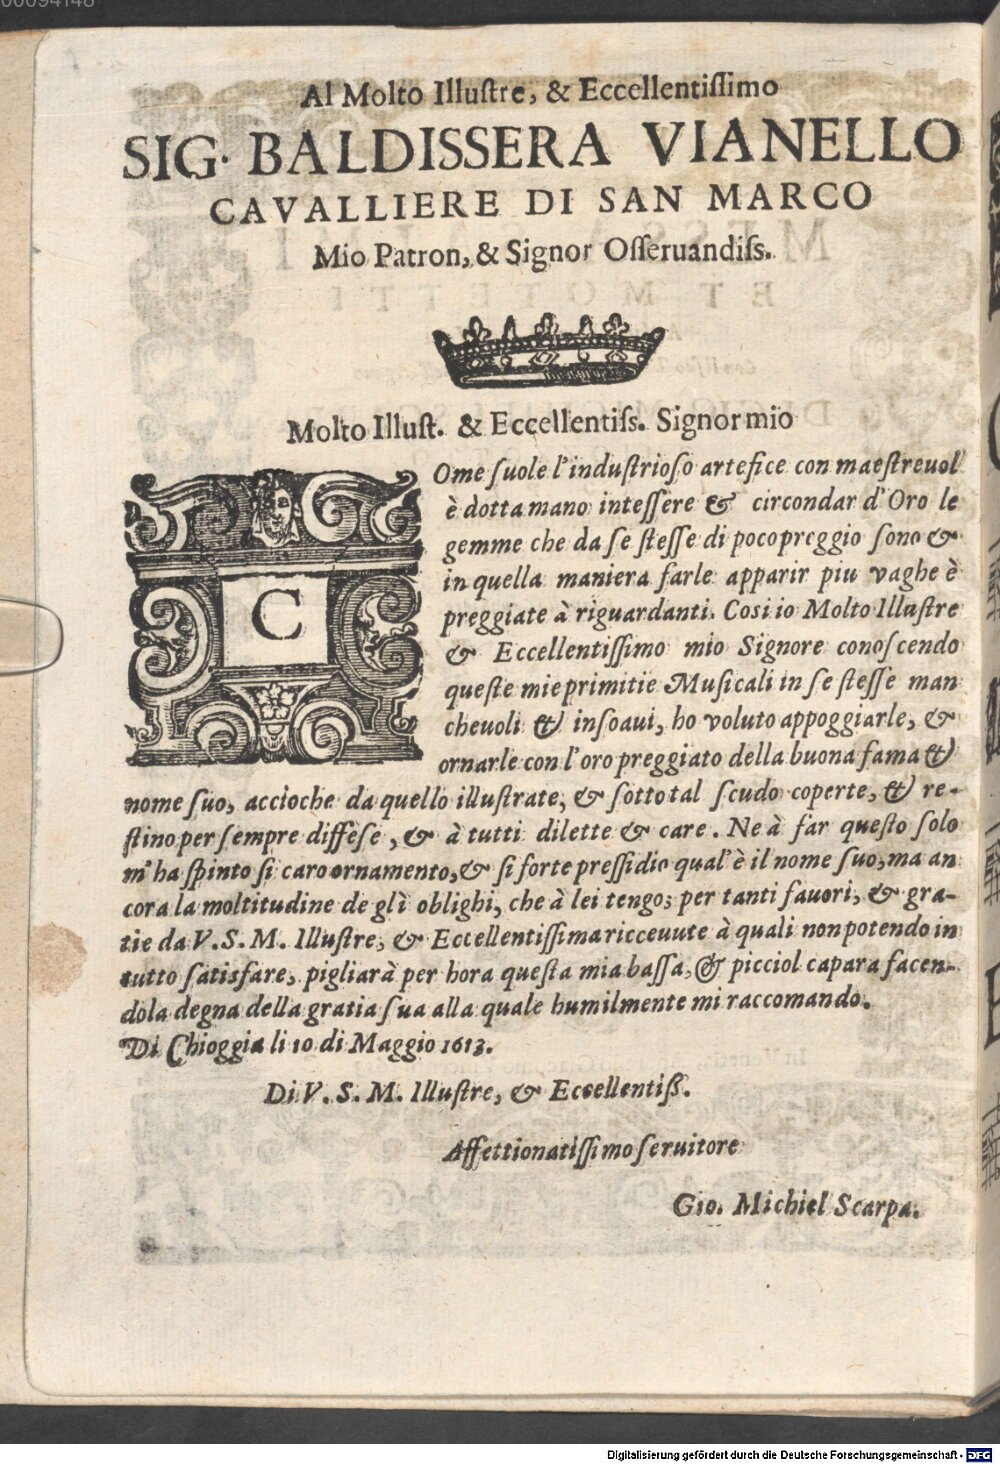 00094148
Al Molto Illuſtre, & Eccellentiſſimo
SIG. BALDISSERA VIANELLO
CAVALLIERE DI SAN MARCO
Mio Patron, & Signor Oſſeruandiſs.
Molto Illuſt. & Eccellentiſs. Signor mio
COme ſuole l'induſtrioſo artefice con maeſtreuol
è dotta mano inteſſere & circondar d'Oro le
gemme che da ſe ſteſſe di poco preggio ſono &
in quella maniera farle apparir piu vaghe è
preggiate à riguardanti. Coſi io Molto Illuſtre
& Eccellentiſſimo mio Signore conoſcendo
queſte mie primitie Muſicali in ſe ſteſſe man
cheuoli & inſoaui, ho voluto appoggiarle, &
ornarle con l'oro preggiato della buona fama &
nome ſuo, accìoche da quello illuſtrate, & ſotto tal ſcudo coperte, & re-
ſtino per ſempre diffeſe, & à tutti dilette & care. Ne à far queſto ſolo
m'ha ſpinto ſi caro ornamento, & ſi forte preſſidio qual'è il nome ſuo, ma an
cora la moltitudine de glì oblighi, che à lei tengo; per tanti fauori, & gra-
tie da V. S. M. Illuſtre, & Eccellentiſſima ricceuute à quali non potendo in
tutto ſatisfare, pigliarà per hora queſta mia baſſa, & picciol capara facen-
dola degna della gratia ſua alla quale humilmente mi raccomando.
Di Chioggia li 10 di Maggio 1613.
Di V. S. M. Illuſtre, & Eccellentiſs.
Affettionatiſſimo ſeruitore
Gio. Michiel Scarpa.
Digitalisierung gefördert durch die Deutsche Forschungsgemeinschaft - DFG